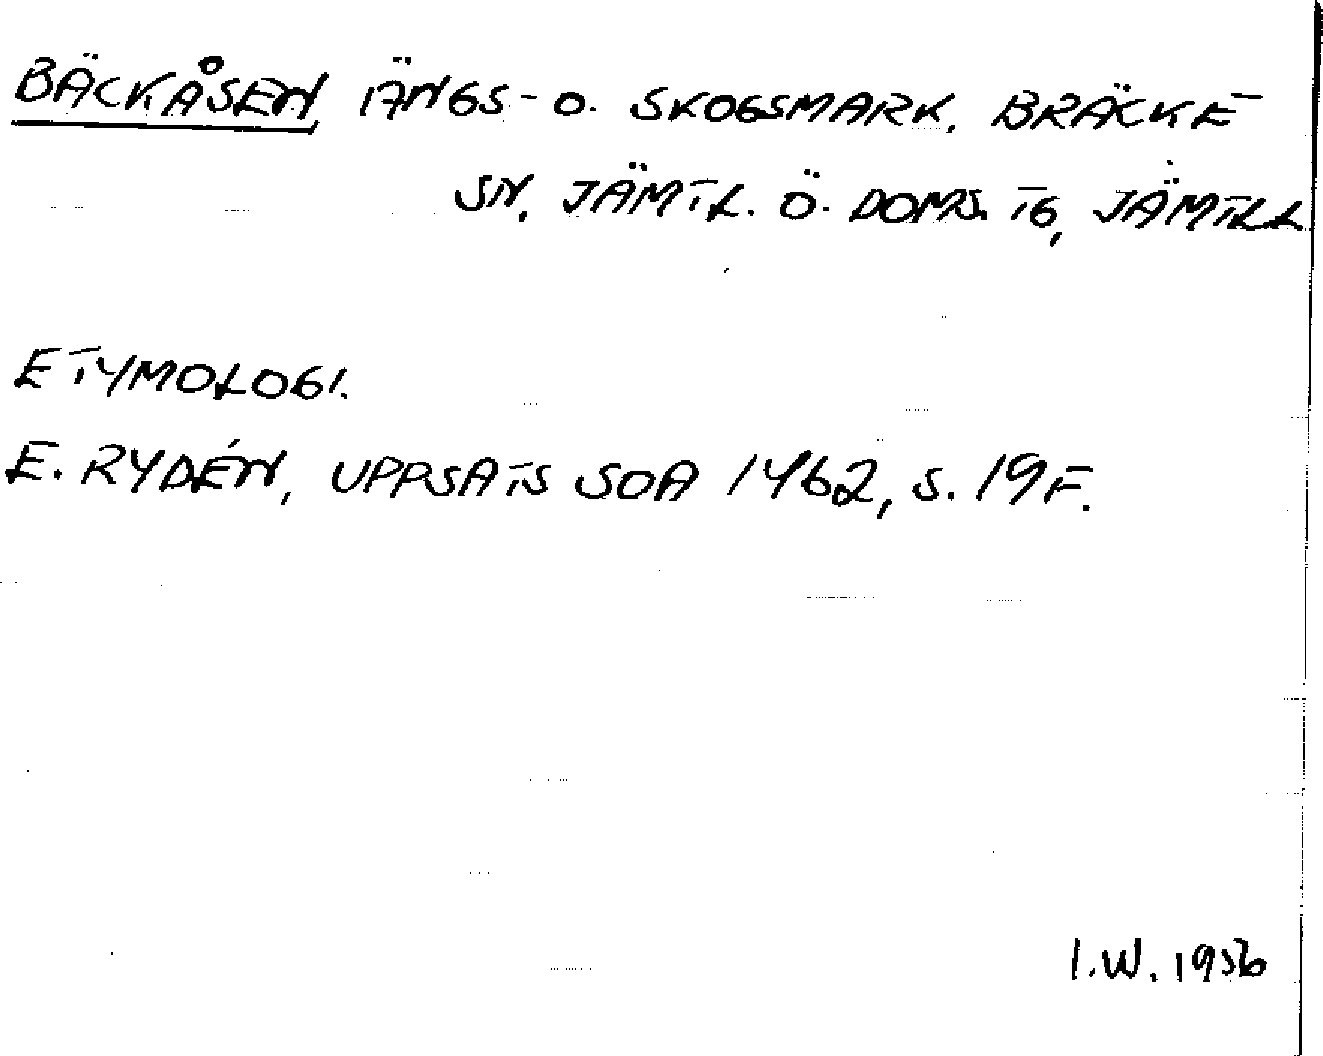 BÄCKÅSEN, ÄNGS- O. SKOGSMARK, BRÄCKE
SN, JÄMTL. Ö. DOMS. TG, JÄMTL L
ETYMOLOGI.
E. RYDÉN, UPPSATS SOA 1462, S. 19 F.
I.W. 1956